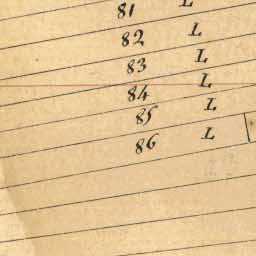 81 L
82 L
83 L
84 L
85 L
86 L